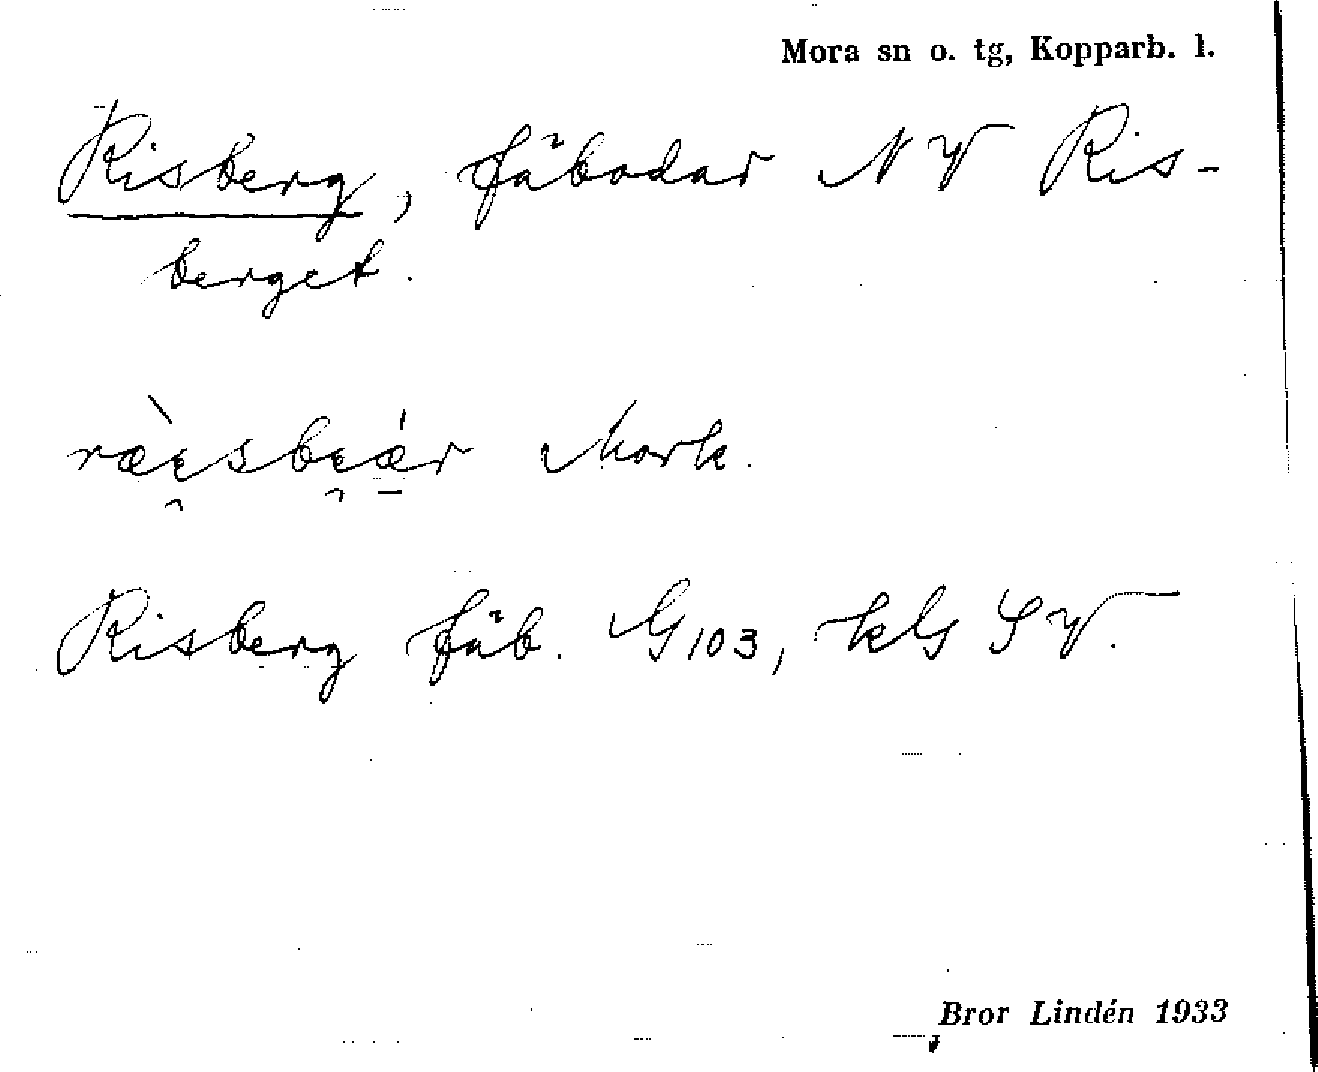 Mora sn o. tg, Kopparb. l.
Risberg, fäbodar NV Ris-
berget.
ræ̀i̯sbi̯ǽ̱r Mork.
Risberg fäb. G103, kG SV.
Bror Lindén 1933